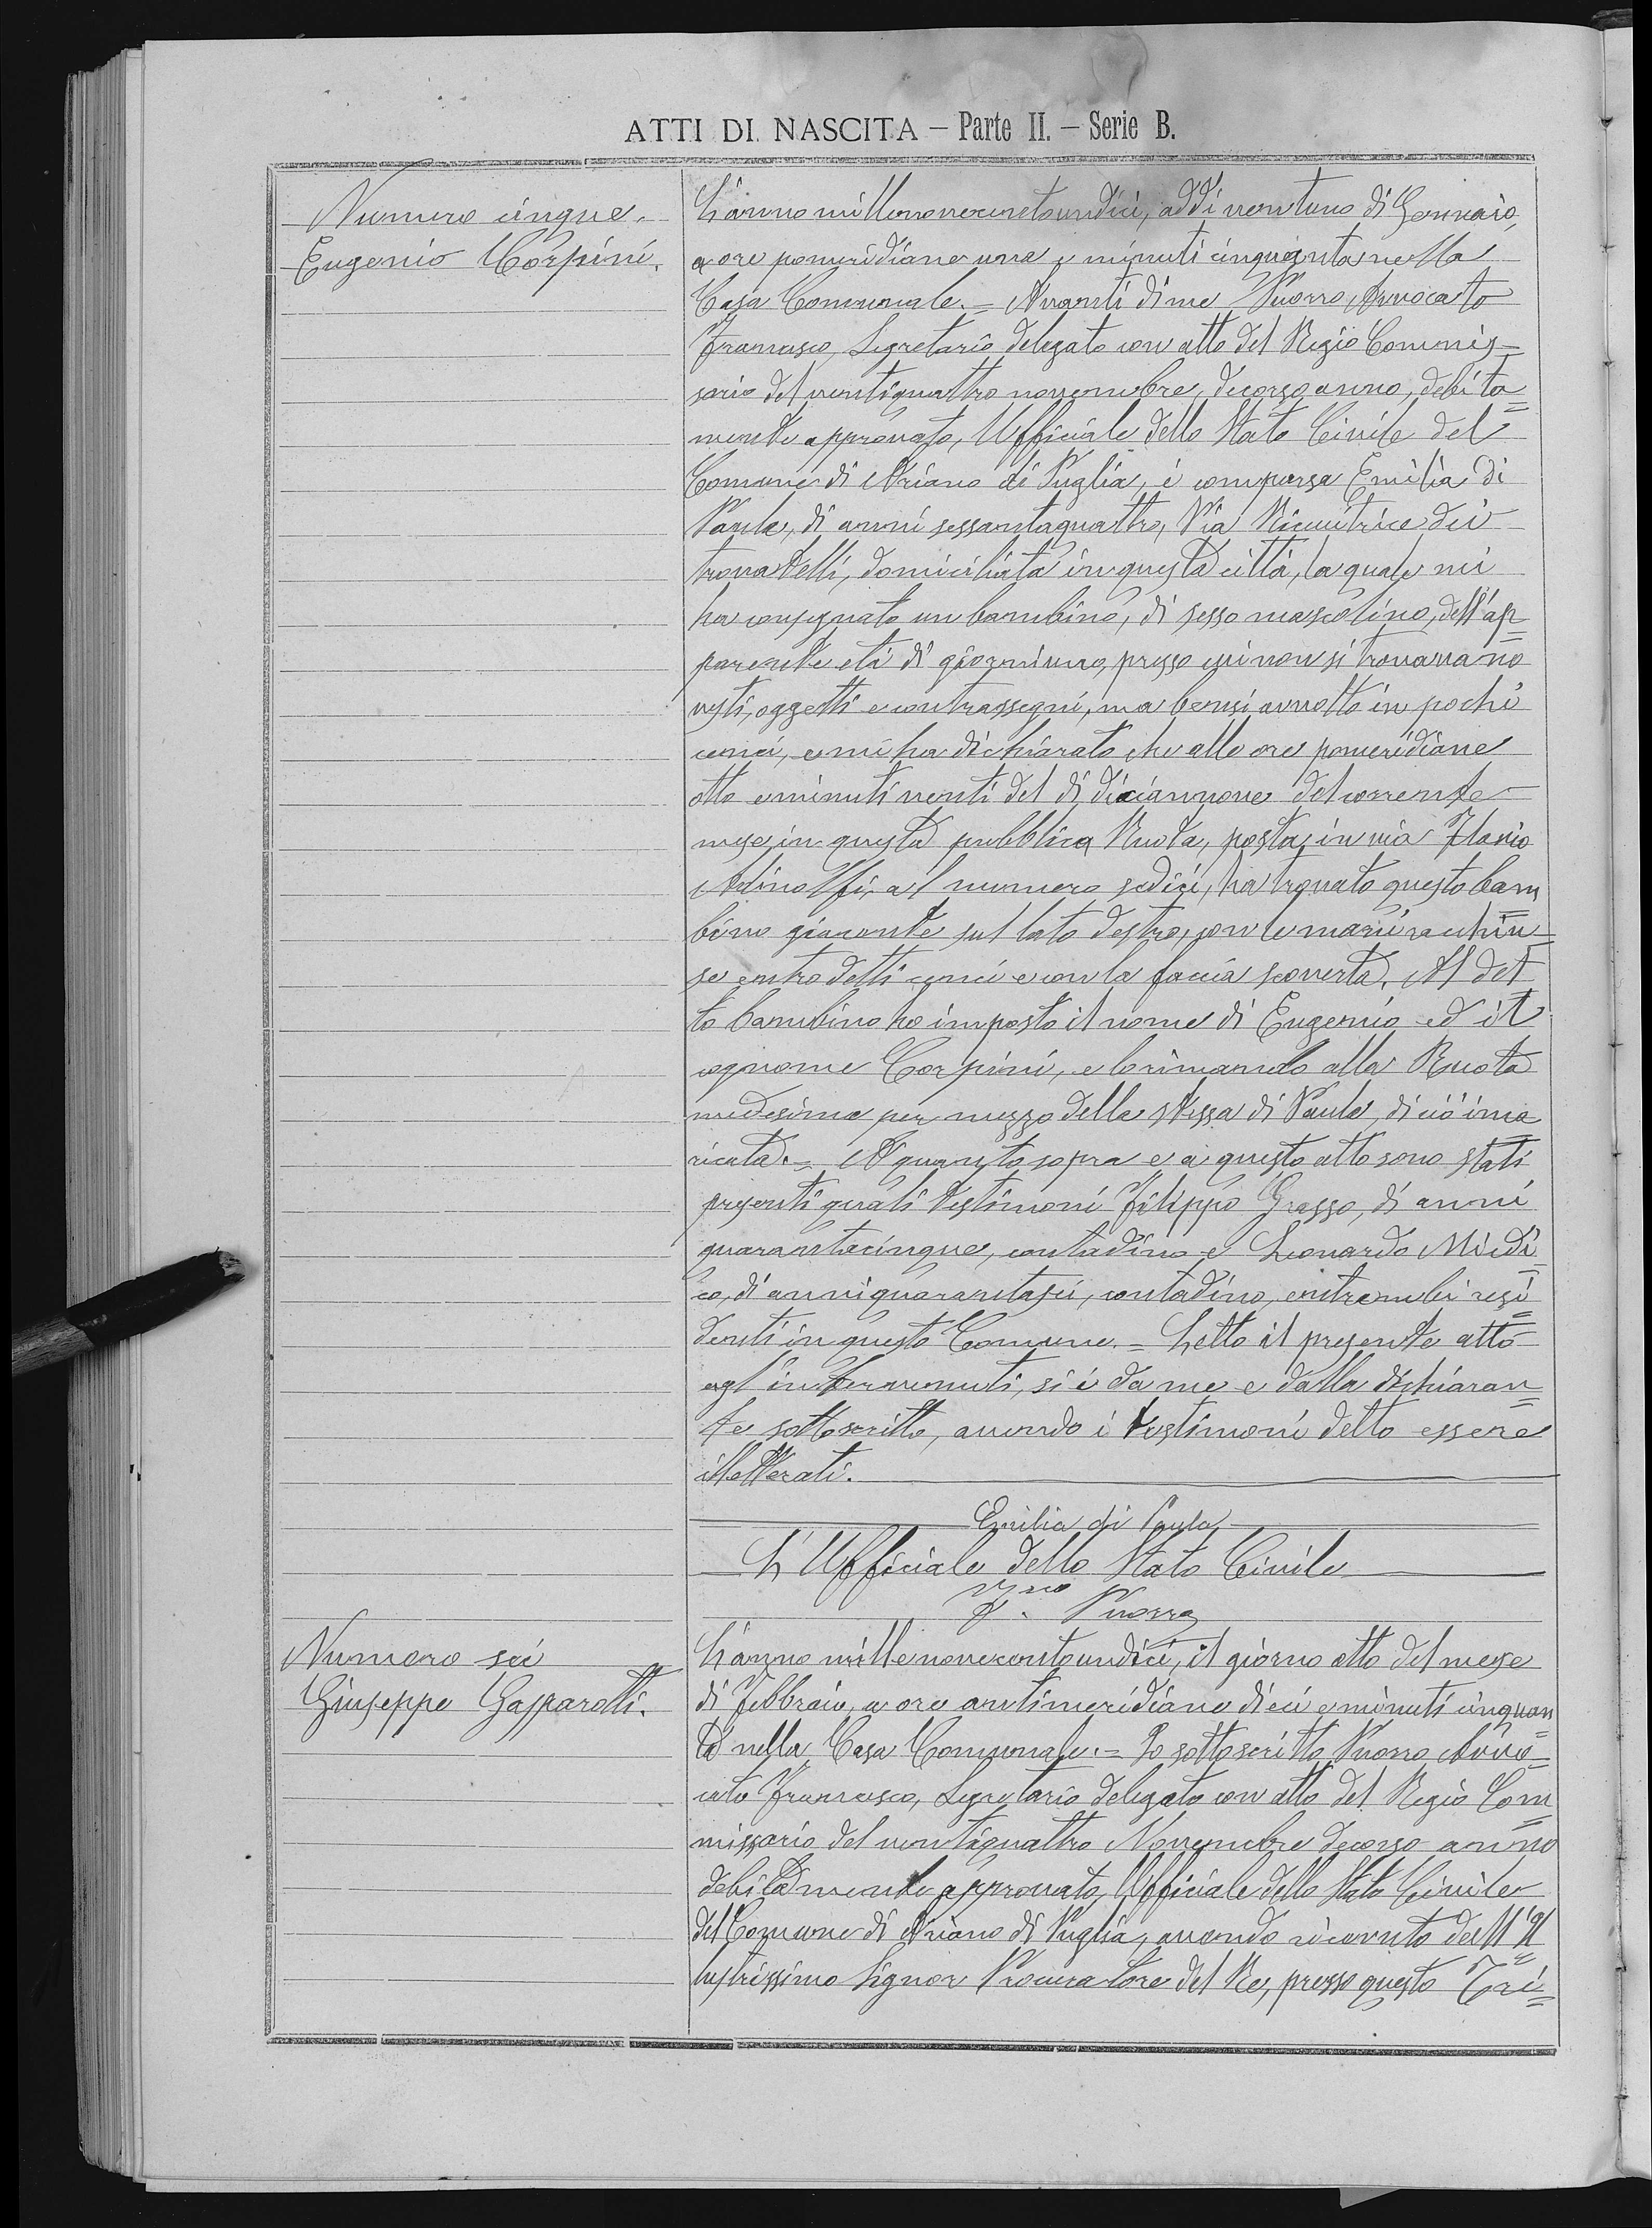 ATTI DI NASCITA — Parte II. — Serie B.
Numero cinque.
Eugenio Corpini.
L'anno millenovecentoundici, addì ventuno di Gennaio,
a ore pomeridiane una e minuti cinquanta nella
Casa Comunale. = Avanti di me Vuorro Avvocato
Francesco, Segretario delegato con atto del Regio Commis=
sario del ventiquattro novembre, decorso anno, debita=
mente approvato, Ufficiale dello Stato Civile del
Comune di Ariano di Puglia, è comparsa Emilia di
Paula, di anni sessantaquattro, Pia Ricevitrice dei
trovatelli, domiciliata in questa città, la quale mi
ha consegnato un bambino, di sesso mascolino, dell'ap=
parente età di giorni uno, presso cui non si trovavano
vesti, oggetti e contrassegni, ma bensì avvolto in pochi
cenci, e mi ha dichiarato che alle ore pomeridiane
otto e minuti venti del dì diciannove del corrente
mese in questa pubblica Ruota, posta in via Flavio
Adinolfi, al numero sedici, ha trovato questo bam=
bino giacente sul lato destro, con le mani racchiu=
se entro detti cenci e con la faccia scoverta. Al det=
to bambino ho imposto il nome di Eugenio ed il
cognome Corpini, e lo rimando alla Ruota
medesima per mezzo della stessa di Paula, di ciò inca
ricata. = A quanto sopra e a questo atto sono stati
presenti quali testimoni Filippo Grasso, di anni
quarantacinque, contadino e Leonardo Miedi=
co, di anni quarantasei, contadino, entrambi resi=
denti in questo Comune. = Letto il presente atto
agl'intervenuti, si è da me e dalla dichiaran=
te sottoscritto, avendo i testimoni detto essere
illetterati.
Emilia di Paula
L'Ufficiale dello Stato Civile
F.sco Vuorro
Numero sei
Giuseppe Gasparotti.
L'anno millenovecentoundici, il giorno otto del mese
di Febbraio, a ore antimeridiane dieci e minuti cinquan=
ta nella Casa Comunale. = Io sottoscritto Vuorro Avvo=
cato Francesco, Segretario delegato con atto del Regio Com=
missario del ventiquattro Novembre decorso anno
debitamente approvato, Ufficiale dello Stato Civile
del Comune di Ariano di Puglia, avendo ricevuto dall'Il=
lustrissimo Signor Procuratore del Re, presso questo Tri=